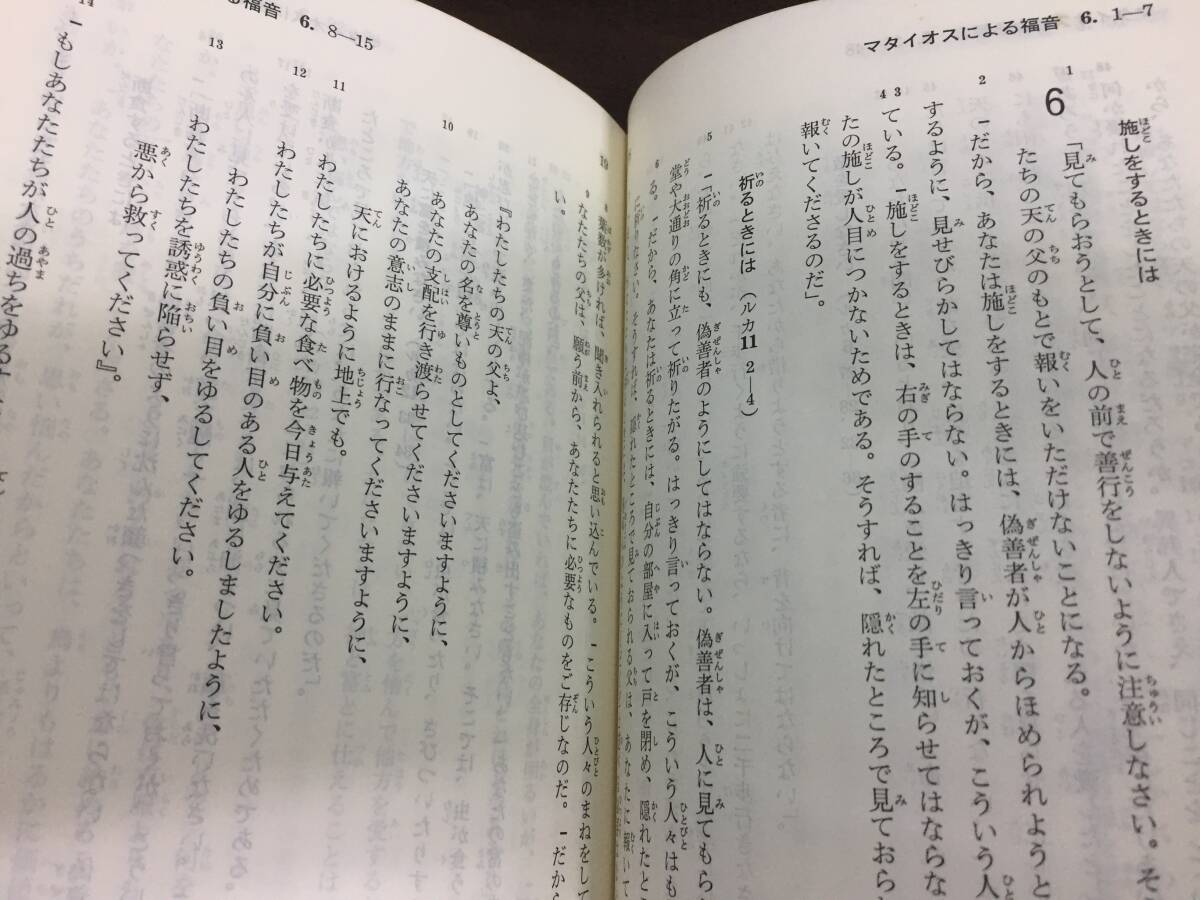 マタイオスによる福音 6. 1—7
施しをするときには
6
1
「見てもらおうとして、人の前で善行をしないように注意しなさい。そ
たちの天の父のもとで報いをいただけないことになる。
2
—だから、あなたは施しをするときには、偽善者が人からほめられようと
するように、見せびらかしてはならない。はっきり言っておくが、こういう人
3
ている。—施しをするときは、右の手のすることを左の手に知らせてはならな
4
たの施しが人目につかないためである。そうすれば、隠れたところで見ておら
報いてくださるのだ」。
祈るときには (ルカ11 2—4)
5
—「祈るときにも、偽善者のようにしてはならない。偽善者は、人に見てもら
堂や大通りの角に立って祈りたがる。はっきり言っておくが、こういう人々はも
6
る。—だから、あなたは祈るときには、自分の部屋に入って戸を閉め、隠れたと
そうすれば、隠れたところで見ておられる父は、あなたに報いて
る福音 6. 8—15
8
葉数が多ければ、聞き入れられると思い込んでいる。—こういう人々のまねをして
9
なたたちの父は、願う前から、あなたたちに必要なものをご存じなのだ。—だから
い。
『わたしたちの天の父よ、
あなたの名を尊いものとしてくださいますように、
10
あなたの支配を行き渡らせてくださいますように、
あなたの意志のままに行なってくださいますように、
天におけるように地上でも。
11
わたしたちに必要な食べ物を今日与えてください。
12
わたしたちが自分に負い目のある人をゆるしましたように、
わたしたちの負い目をゆるしてください。
13
わたしたちを誘惑に陥らせず、
悪から救ってください』。
14
—もしあなたたちが人の過ちをゆる